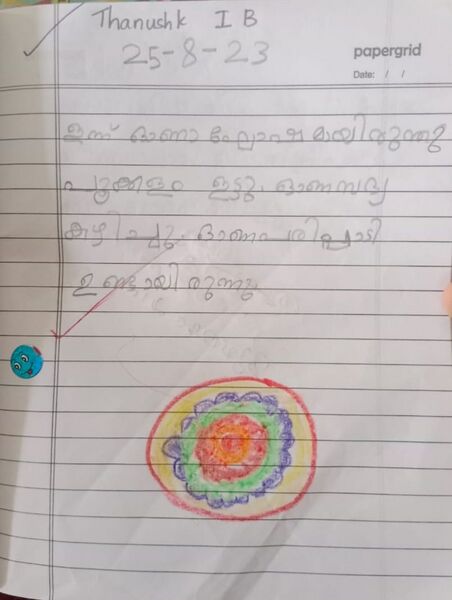 Thanushk I B
25-8-23
papergrid
Date: / /
ഇന്ന് ഓണാഘോഷമായിരുന്നു
പൂക്കളം ഇട്ടു. ഓണസദ്യ
കഴിച്ചു. ഓണപരിപാടി
ഉണ്ടായിരുന്നു